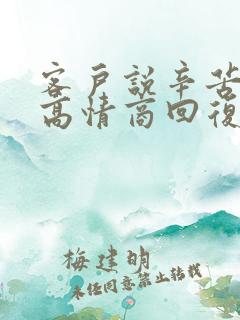 客戶說辛苦
高情商回復
梅建明
未经同意禁止转载